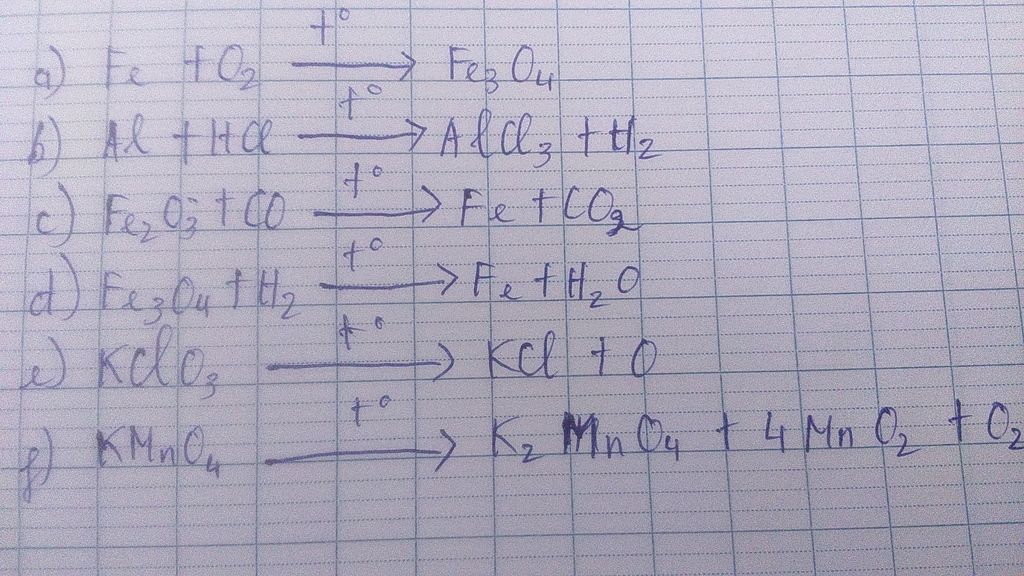 a) Fe + O₂ →(t°) Fe₃O₄
b) Al + HCl →(t°) AlCl₃ + H₂
c) Fe₂O₃ + CO →(t°) Fe + CO₂
d) Fe₃O₄ + H₂ →(t°) Fe + H₂O
e) KClO₃ →(t°) KCl + O
f) KMnO₄ →(t°) K₂MnO₄ + 4MnO₂ + O₂